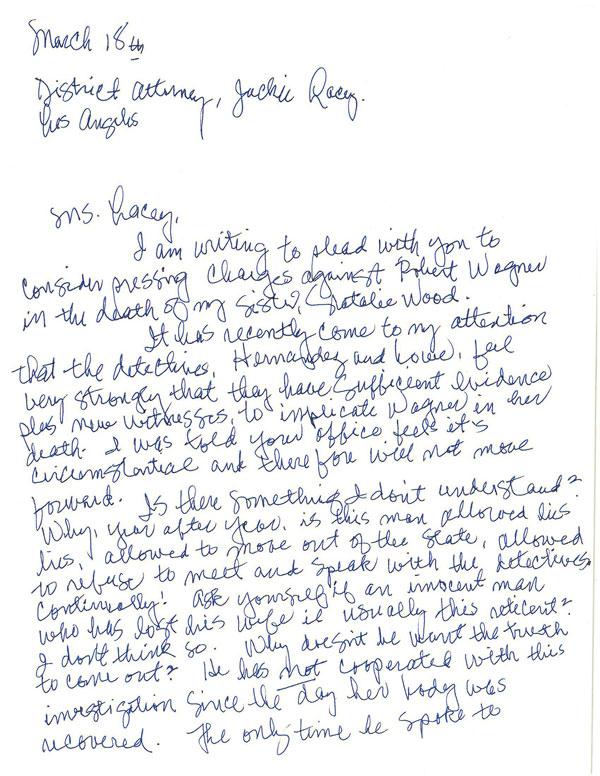 March 18th
District Attorney, Jackie Lacey.
Los Angeles
Ms. Lacey,
I am writing to plead with you to
consider pressing charges against Robert Wagner
in the death of my sister, Natalie Wood.
It has recently come to my attention
that the detectives, Hernandez and Lowe, feel
very strongly that they have sufficient evidence
plus new witnesses, to implicate Wagner in her
death. I was told your office feels it's
circumstantial and therefore will not move
forward. Is there something I don't understand?
Why, year after year, is this man allowed his
lies, allowed to move out of the state, allowed
to refuse to meet and speak with the detectives
continually! Ask yourself if an innocent man
who has lost his wife is usually this reticent?
I don't think so. Why doesn't he want the truth
to come out? He has not cooperated with this
investigation since the day her body was
recovered. The only time he spoke to